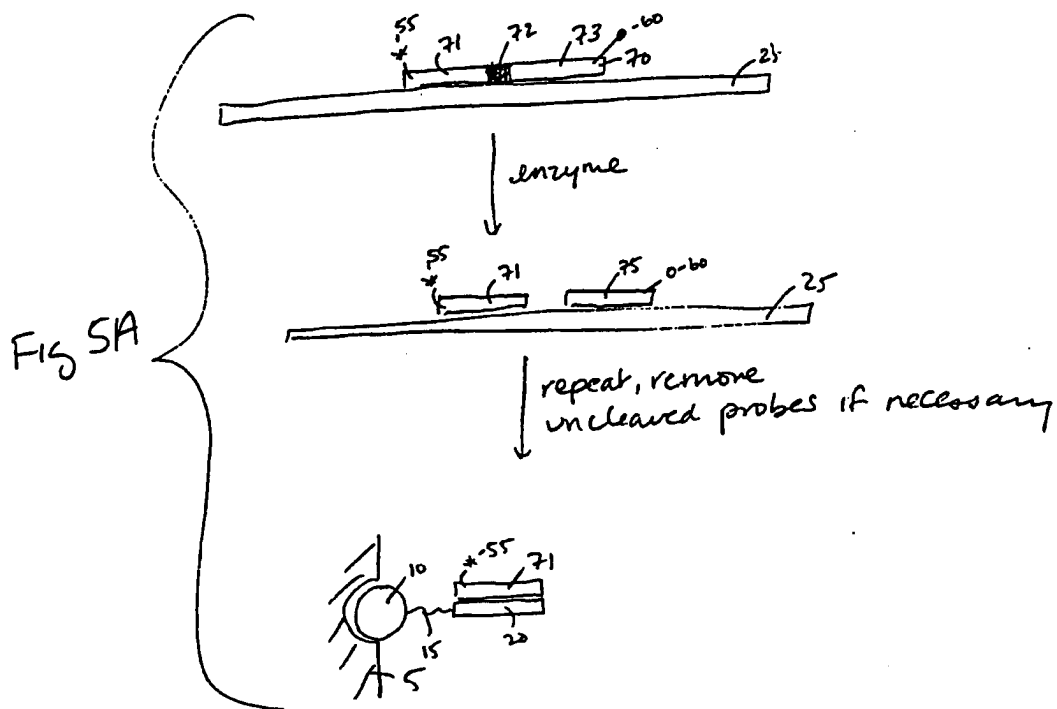 55 71 72 73 -60
70 25
enzyme
55 71 75 0-60
25
Fig 5A
repeat, remove
uncleaved probes if necessary
10 *-55 71
15 20
5